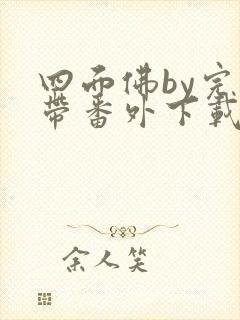 四面佛by完
带番外下载
余人笑